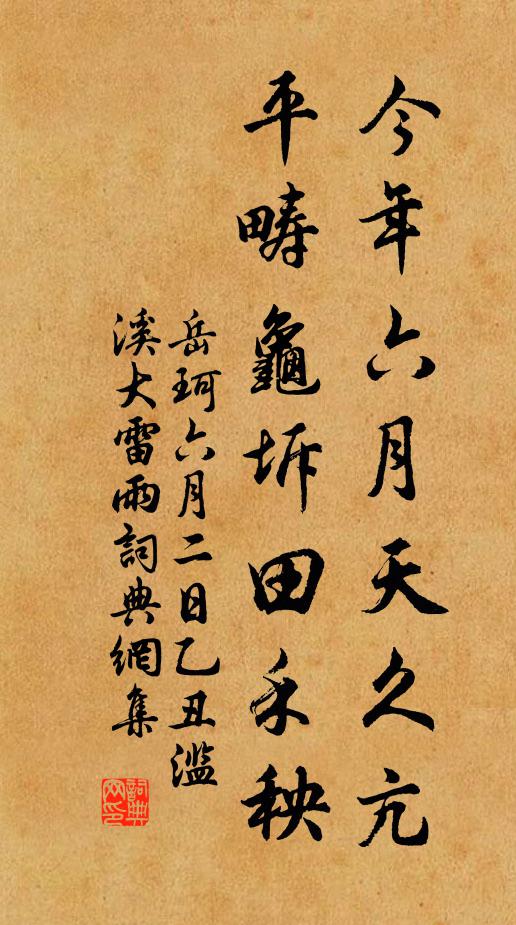 今年六月天久亢
平畴龜坼田禾秧
岳珂六月二日乙丑滥
溪大雷雨詞典網集
詞典
网印